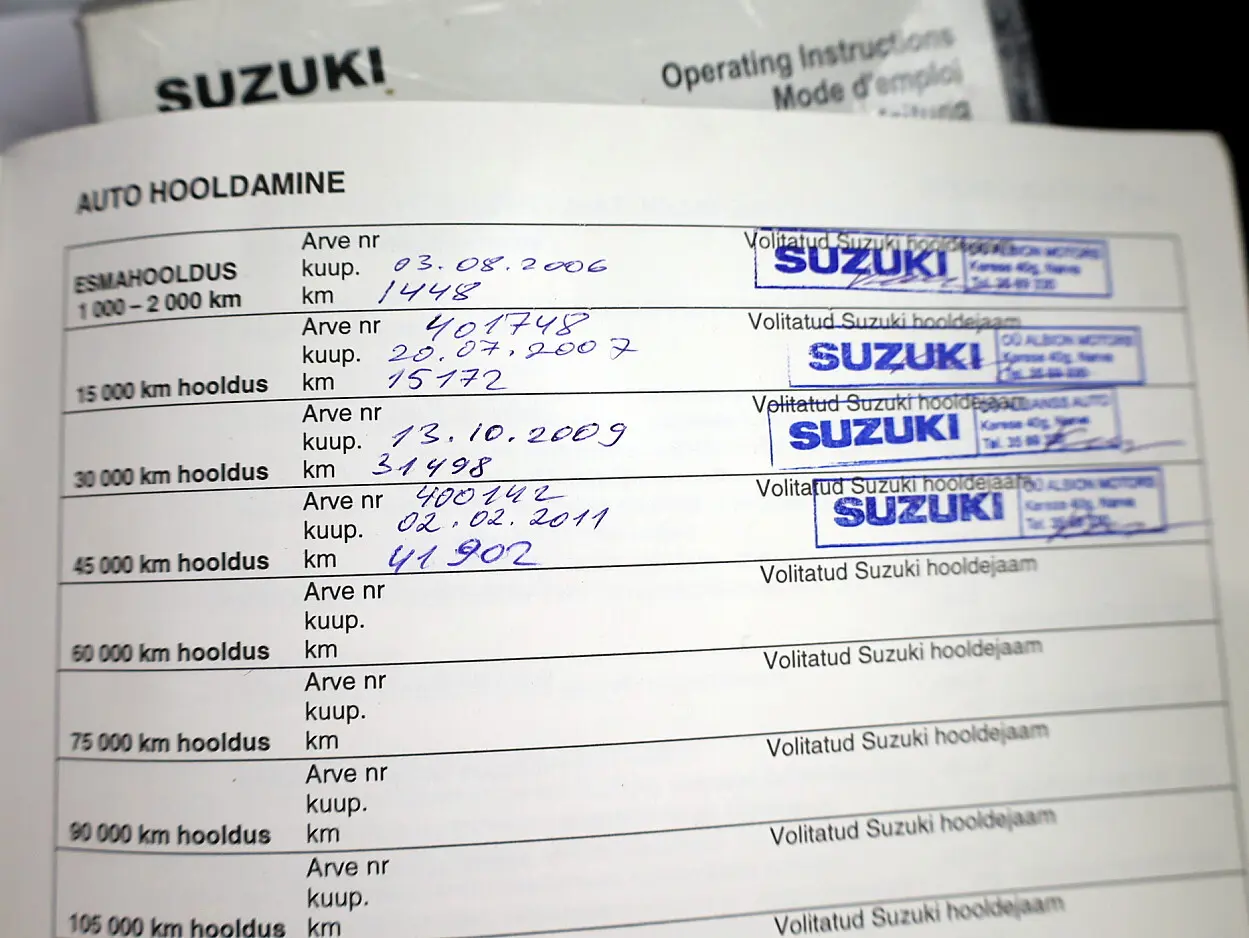 SUZUKI
Operating Instructions
Mode d'emploi
AUTO HOOLDAMINE
ESMAHOOLDUS
1 000 – 2 000 km
Arve nr
kuup. 03.08.2006
km 1448
Volitatud Suzuki hooldejaam
SUZUKI
OÜ ALBION MOTORS
Kerese 40g, Narva
Tel. 35 69
15 000 km hooldus
Arve nr 401748
kuup. 20.07.2007
km 15172
Volitatud Suzuki hooldejaam
SUZUKI
OÜ ALBION MOTORS
Kerese 40g, Narva
Tel. 35 69
30 000 km hooldus
Arve nr
kuup. 13.10.2009
km 31498
Volitatud Suzuki hooldejaam
SUZUKI
AUTO
Kerese 40g, Narva
Tel. 35 69
45 000 km hooldus
Arve nr 400142
kuup. 02.02.2011
km 41902
Volitatud Suzuki hooldejaam
SUZUKI
OÜ ALBION MOTORS
Kerese 40g, Narva
Tel. 35 69
60 000 km hooldus
Arve nr
kuup.
km
Volitatud Suzuki hooldejaam
75 000 km hooldus
Arve nr
kuup.
km
Volitatud Suzuki hooldejaam
90 000 km hooldus
Arve nr
kuup.
km
Volitatud Suzuki hooldejaam
105 000 km hooldus
Arve nr
kuup.
km
Volitatud Suzuki hooldejaam